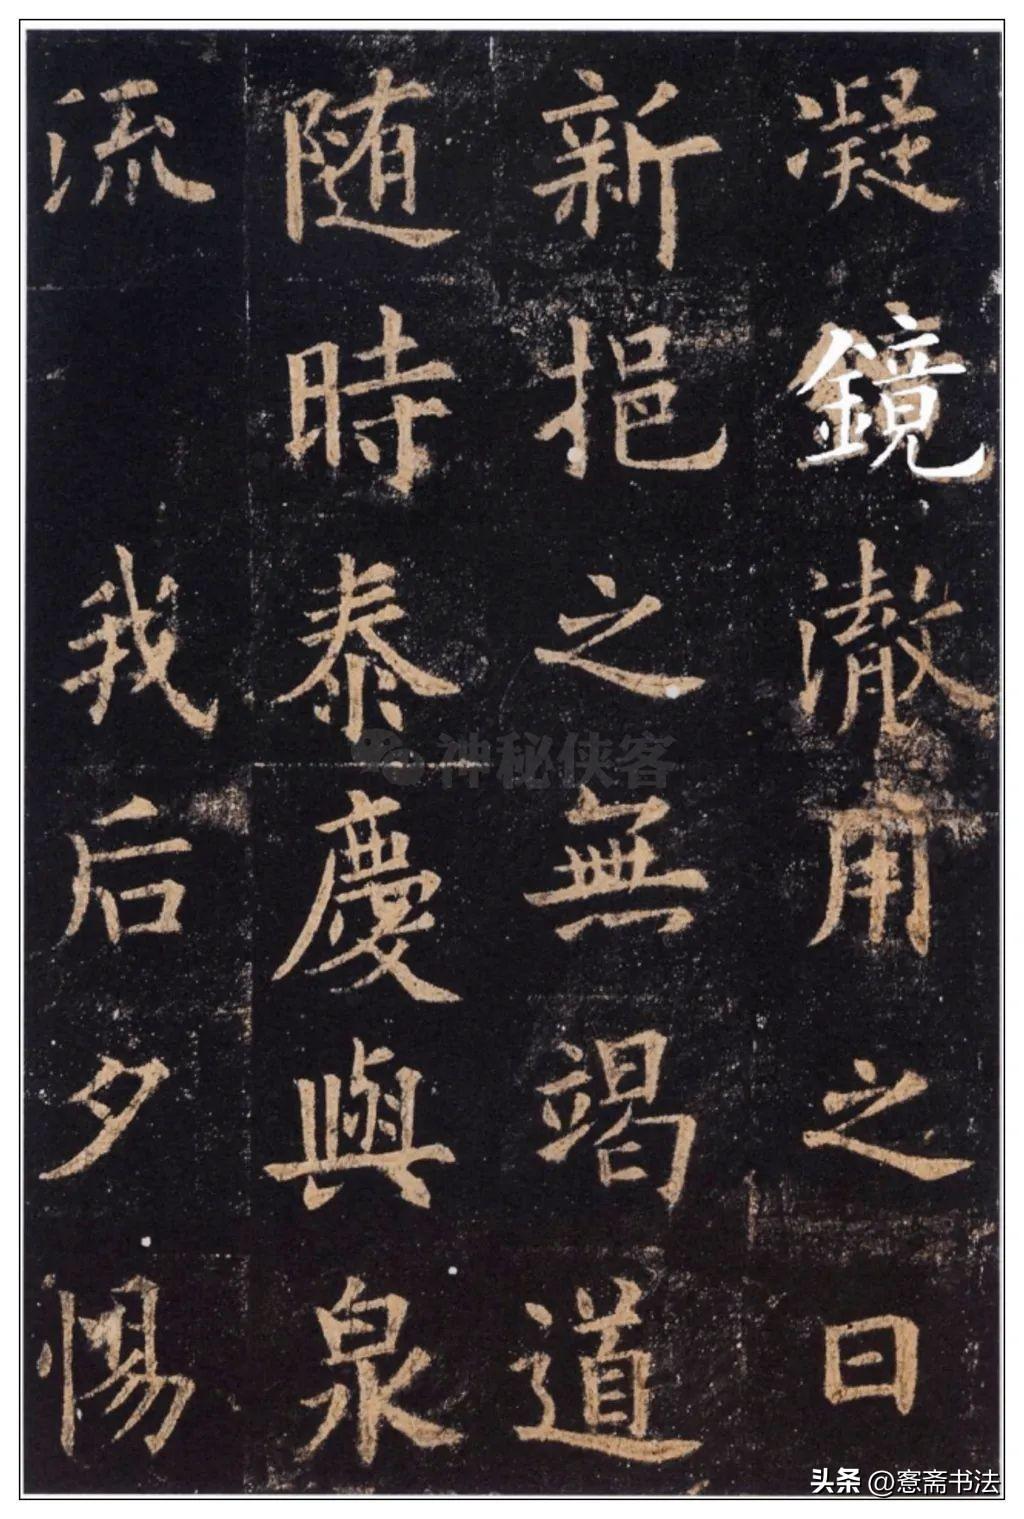 凝鏡澈用之日
新挹之無竭道
随時泰慶與泉
流
我后夕惕
神秘侠客
头条 @窓斋书法